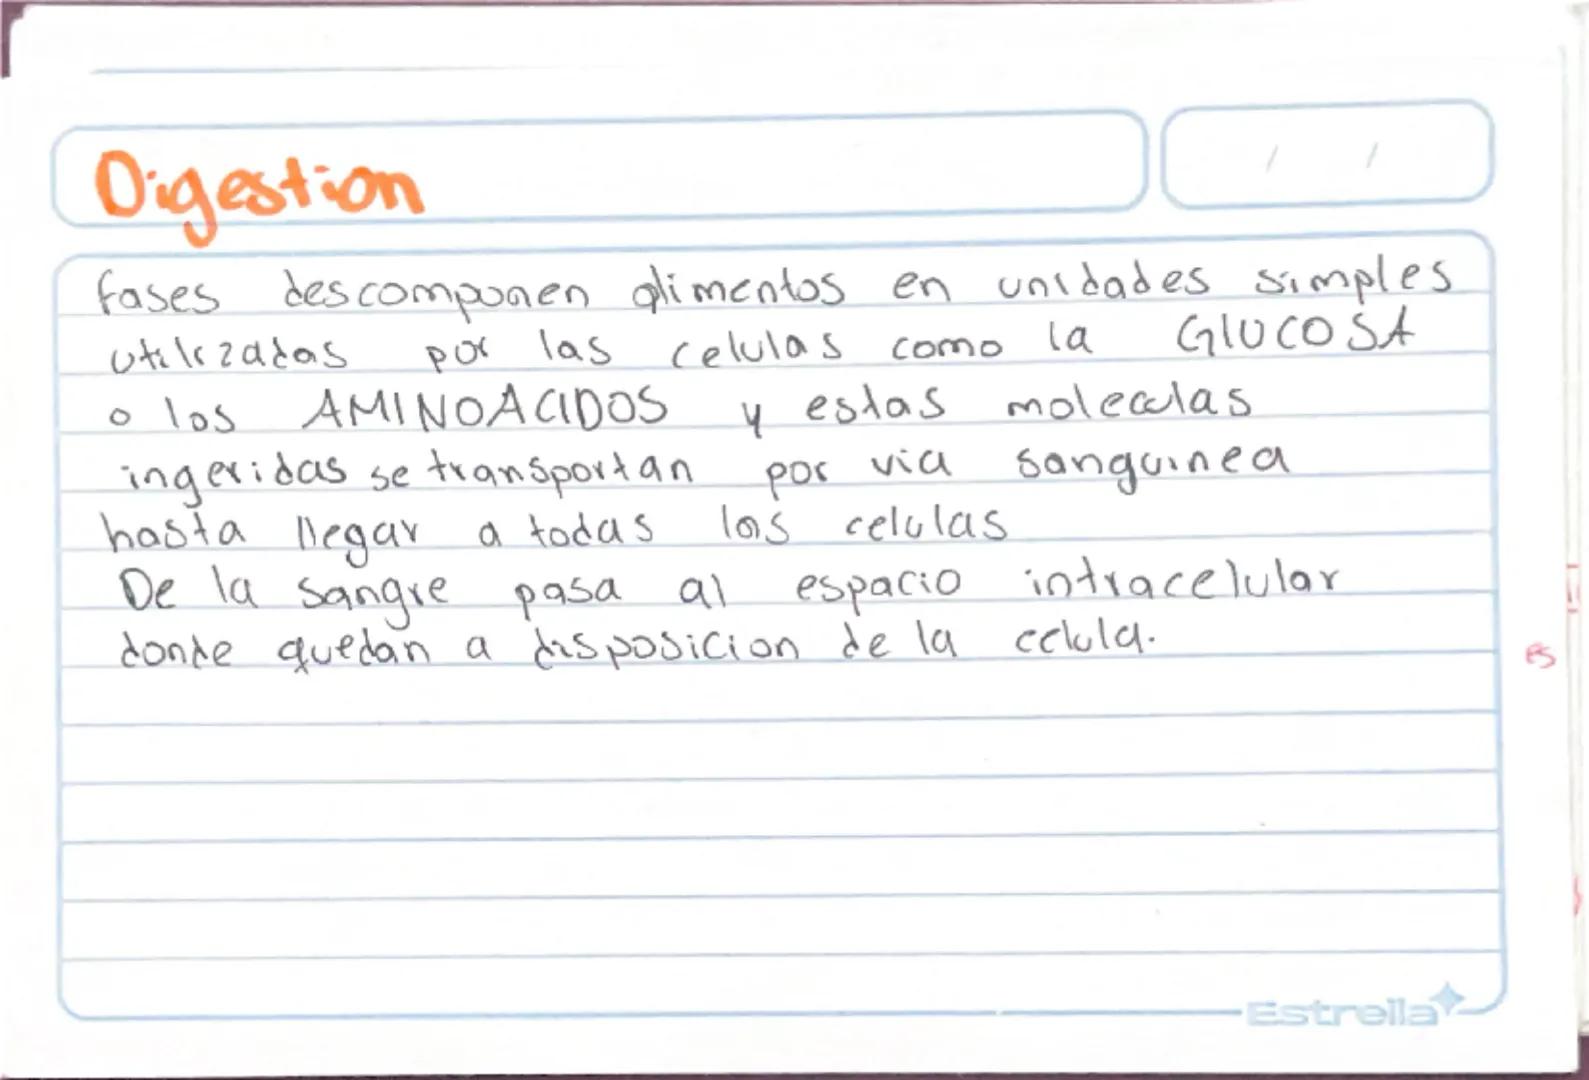 Digestion
/ /
fases descomponen alimentos en unidades simples
utilizadas por las celulas como la GlUCOSA
o los AMINOACIDOS y estas moleculas
ingeridas se transportan por via sanguinea
hasta llegar a todas las celulas
De la sangre pasa al espacio intracelular
donde quedan a disposicion de la celula.
es
Estrella